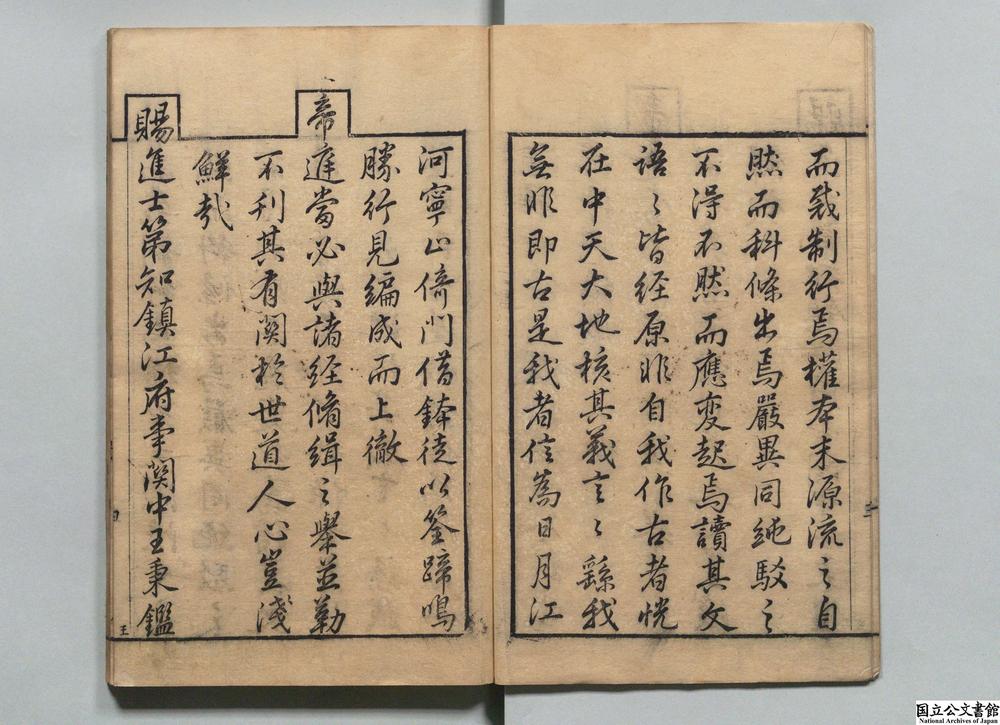 而裁制行焉權本末源流之自
然而科條出焉嚴異同純駁之
不得不然而應变起焉讀其文
語〻皆経原非自我作古者恍
在中天大地核其義言〻繇我
無非即古是我者信為日月江
河寧山倚門借鉢徒以筌蹄鳴
勝行見編成而上徹
帝庭當必與諸経脩緝之舉並勒
不刋其有関於世道人心豈淺
鮮哉
賜進士第知鎮江府事関中王秉鑑
国立公文書館
National Archives of Japan